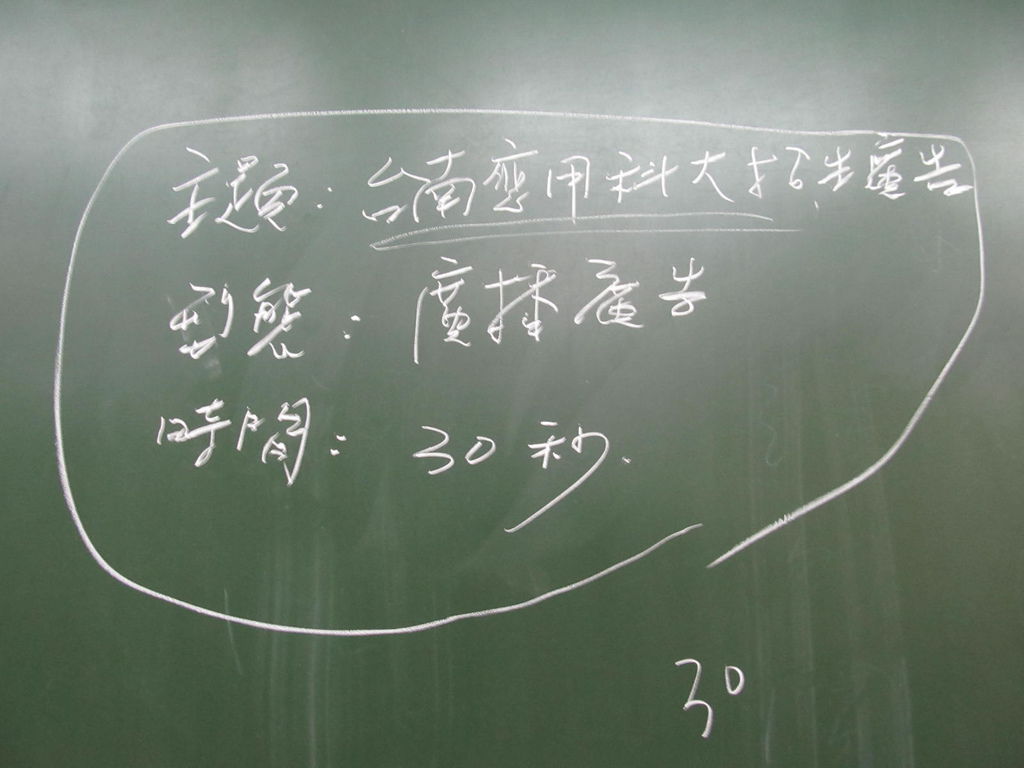 主題：台南應用科大招生廣告
型態：廣播廣告
時間：30秒.
30